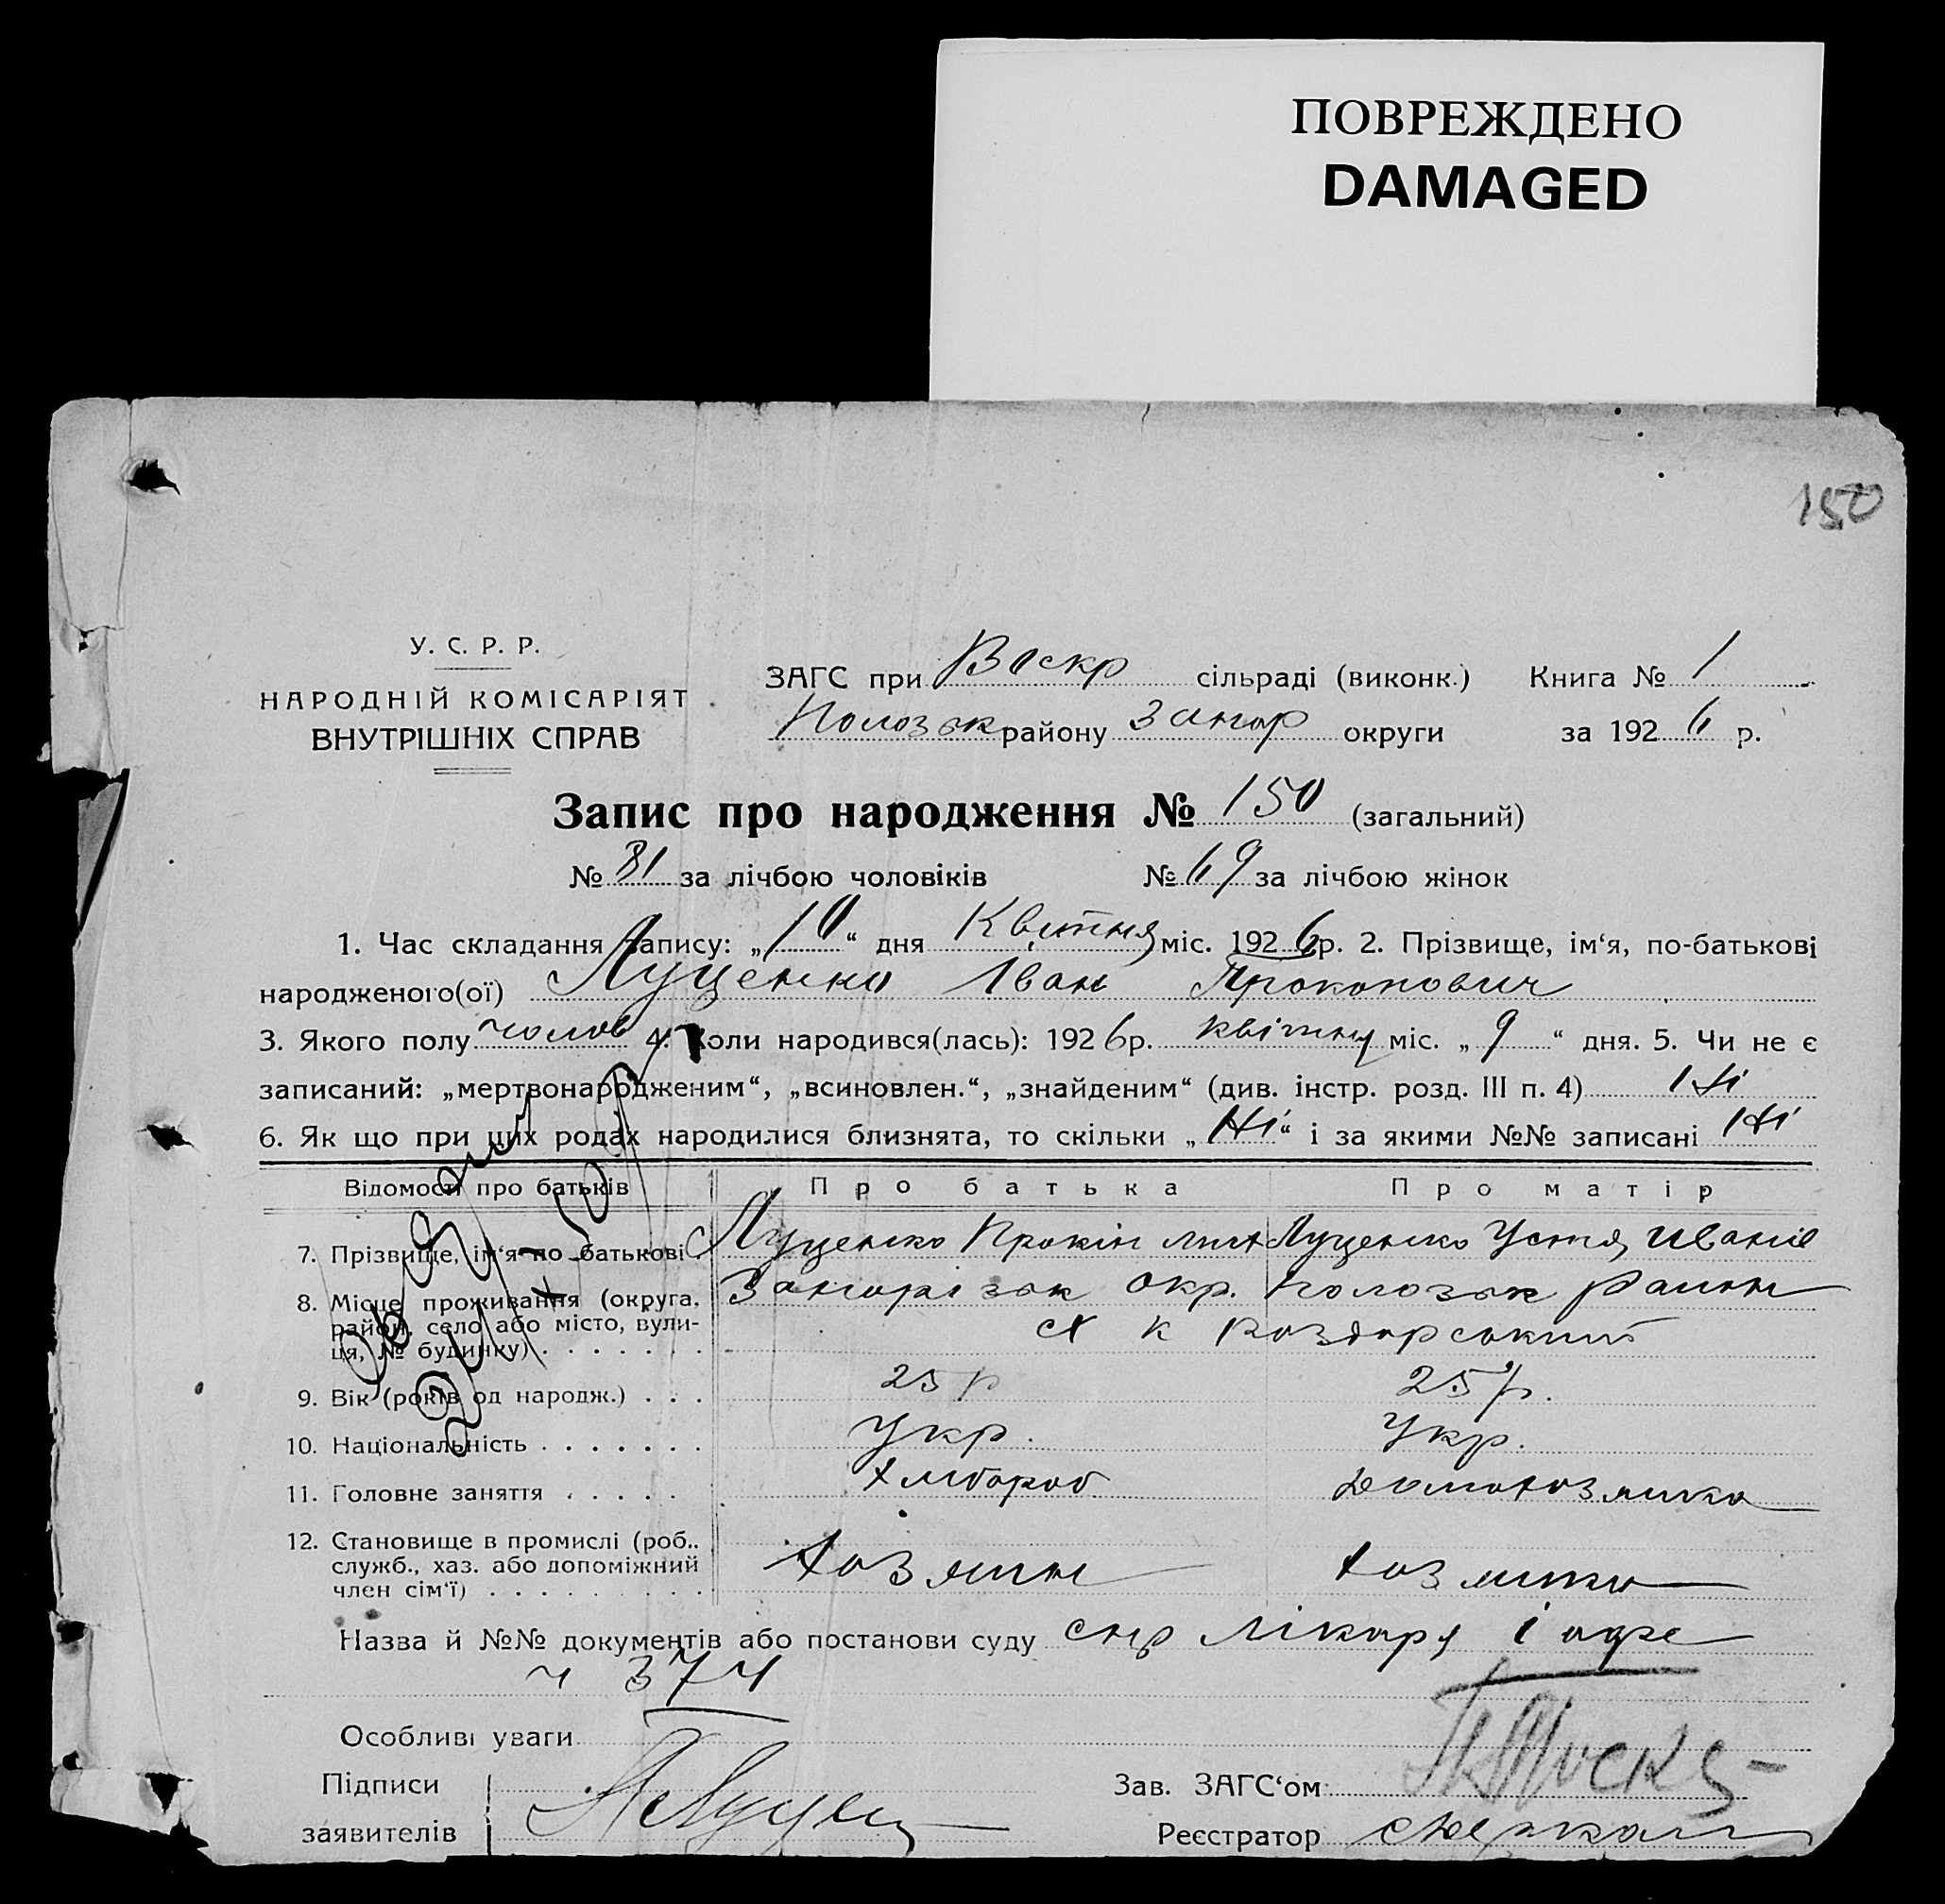 ПОВРЕЖДЕНО
DAMAGED
150
У. С. Р. Р.
НАРОДНІЙ КОМІСАРІЯТ
ВНУТРІШНІХ СПРАВ
ЗАГС при Воскр сільраді (виконк.) Книга № 1
Полозьк району Запор округи за 1926 р.
Запис про народження № 150 (загальний)
№ 81 за лічбою чоловіків № 69 за лічбою жінок
1. Час складання запису: „10“ дня Квітня міс. 1926 р. 2. Прізвище, ім‘я, по-батькові
народженого(ої) Луценко Іван Прокопович
3. Якого полу чолов 4. Коли народився(лась): 1926 р. квітня міс. „9“ дня. 5. Чи не є
записаний: „мертвонародженим“, „всиновлен.“, „знайденим“ (див. інстр. розд. III п. 4) Ні
6. Як що при цих родах народилися близнята, то скільки „Ні“ і за якими №№ записані Ні
Відомості про батьків Про батька Про матір
7. Прізвище, ім‘я по батькові Луценко Прокіп Луценко Устя Іванів
8. Місце проживання (округа, Запорізьк окр. Полозьк район
район, село або місто, вули-
ця, № будинку)
9. Вік (років од народж.) 25 р 25 р.
10. Національність Укр. Укр.
11. Головне заняття Хлібороб Домохозяйка
12. Становище в промислі (роб.. Хозяин Хозяйка
служб., хаз. або допоміжний
член сім‘ї)
Назва й №№ документів або постанови суду лікаря і
ч 374
Особливі уваги
Підписи Зав. ЗАГС‘ом
заявителів Реєстратор